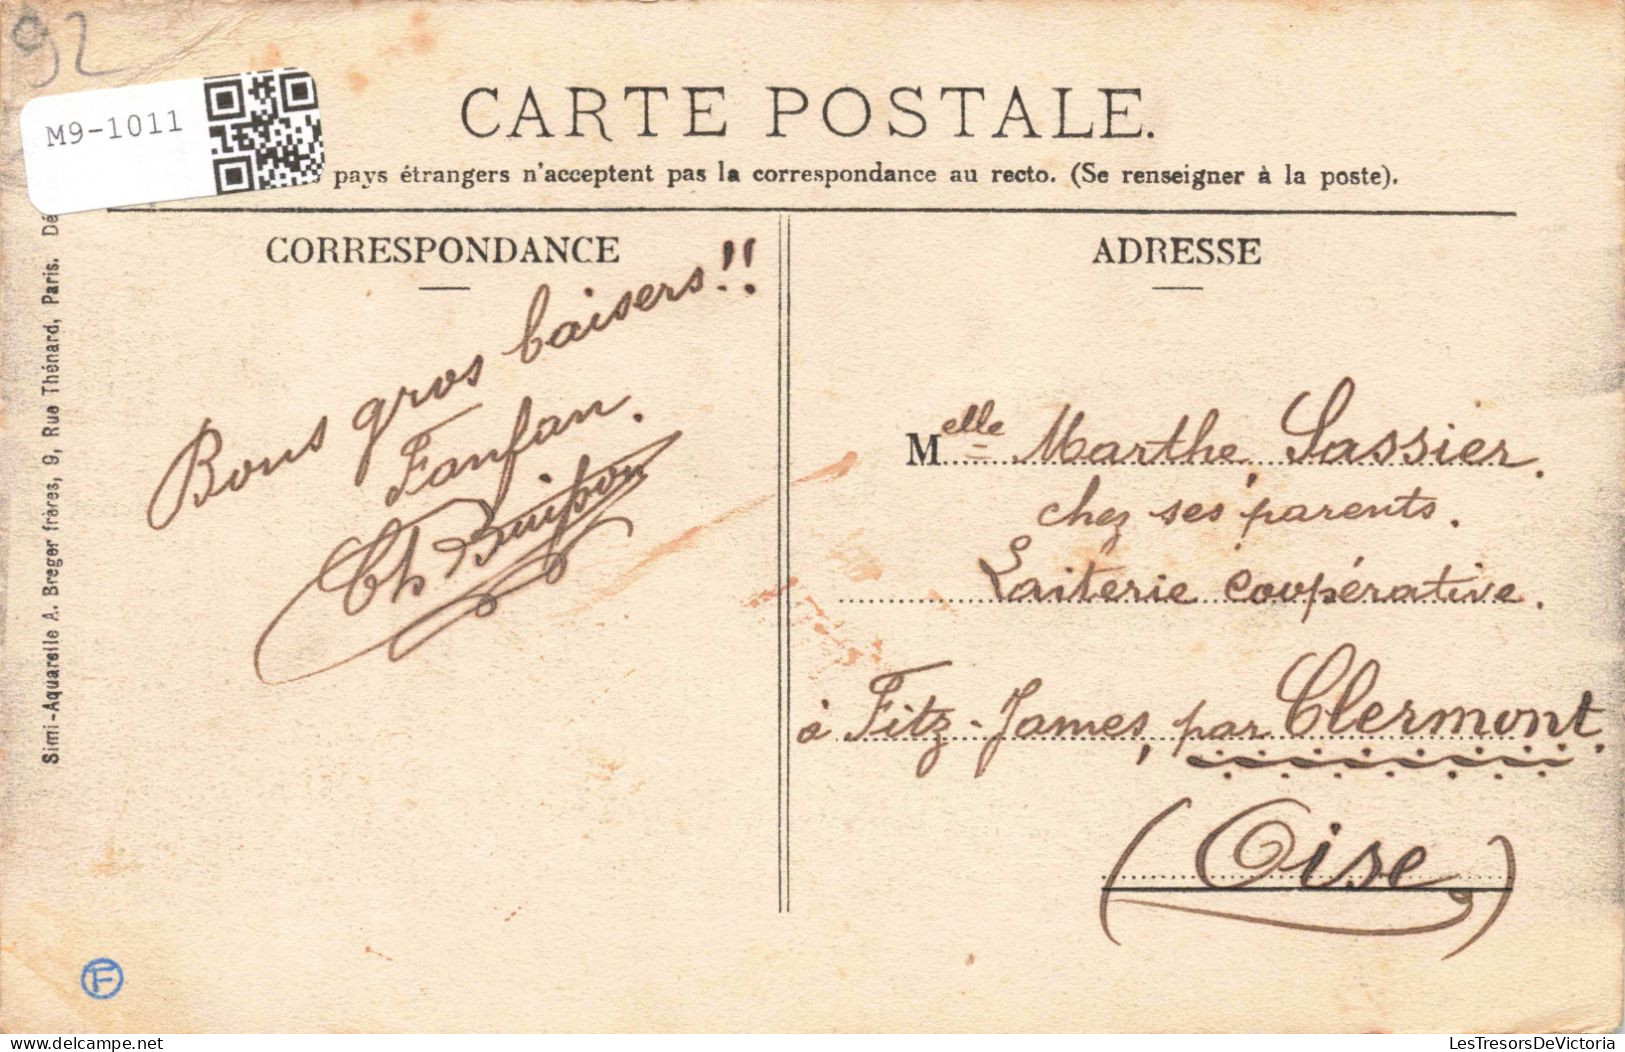 92
M9-1011
CARTE POSTALE.
pays étrangers n'acceptent pas la correspondance au recto. (Se renseigner à la poste).
CORRESPONDANCE
Bons gros baisers!!
Fanfan.
Th Buisson
ADRESSE
Melle Marthe Sassier.
chez ses parents.
Laiterie coopérative.
à Fitz-James, par Clermont.
(Oise)
Simi-Aquarelle A. Breger frères, 9, Rue Thénard, Paris. Dé
F
LesTresorsDeVictoria.com